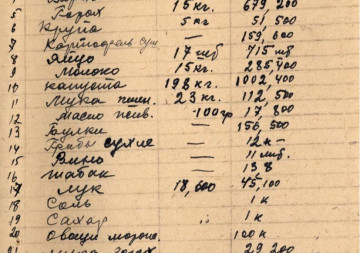 5 Горох 15 кг. 679,200
6 Крупа 5 кг 51,500
7 Картофель суш — 159,600
8 Яйцо 17 шт 715 шт
9 Молоко 15 кг. 285,400
10 капуста 198 кг. 1002,400
11 Мука пшен. 23 кг. 112,500
12 Масло —100 гр 17,800
13 Булки — 156,500
14 Грибы сухие — 12 к—
15 Вино — 11 лит.
16 табак — 138
17 лук 18,600 45,100
18 Соль 1 к
19 Сахар 1 к
20 Овощи 100 к
21 29 200